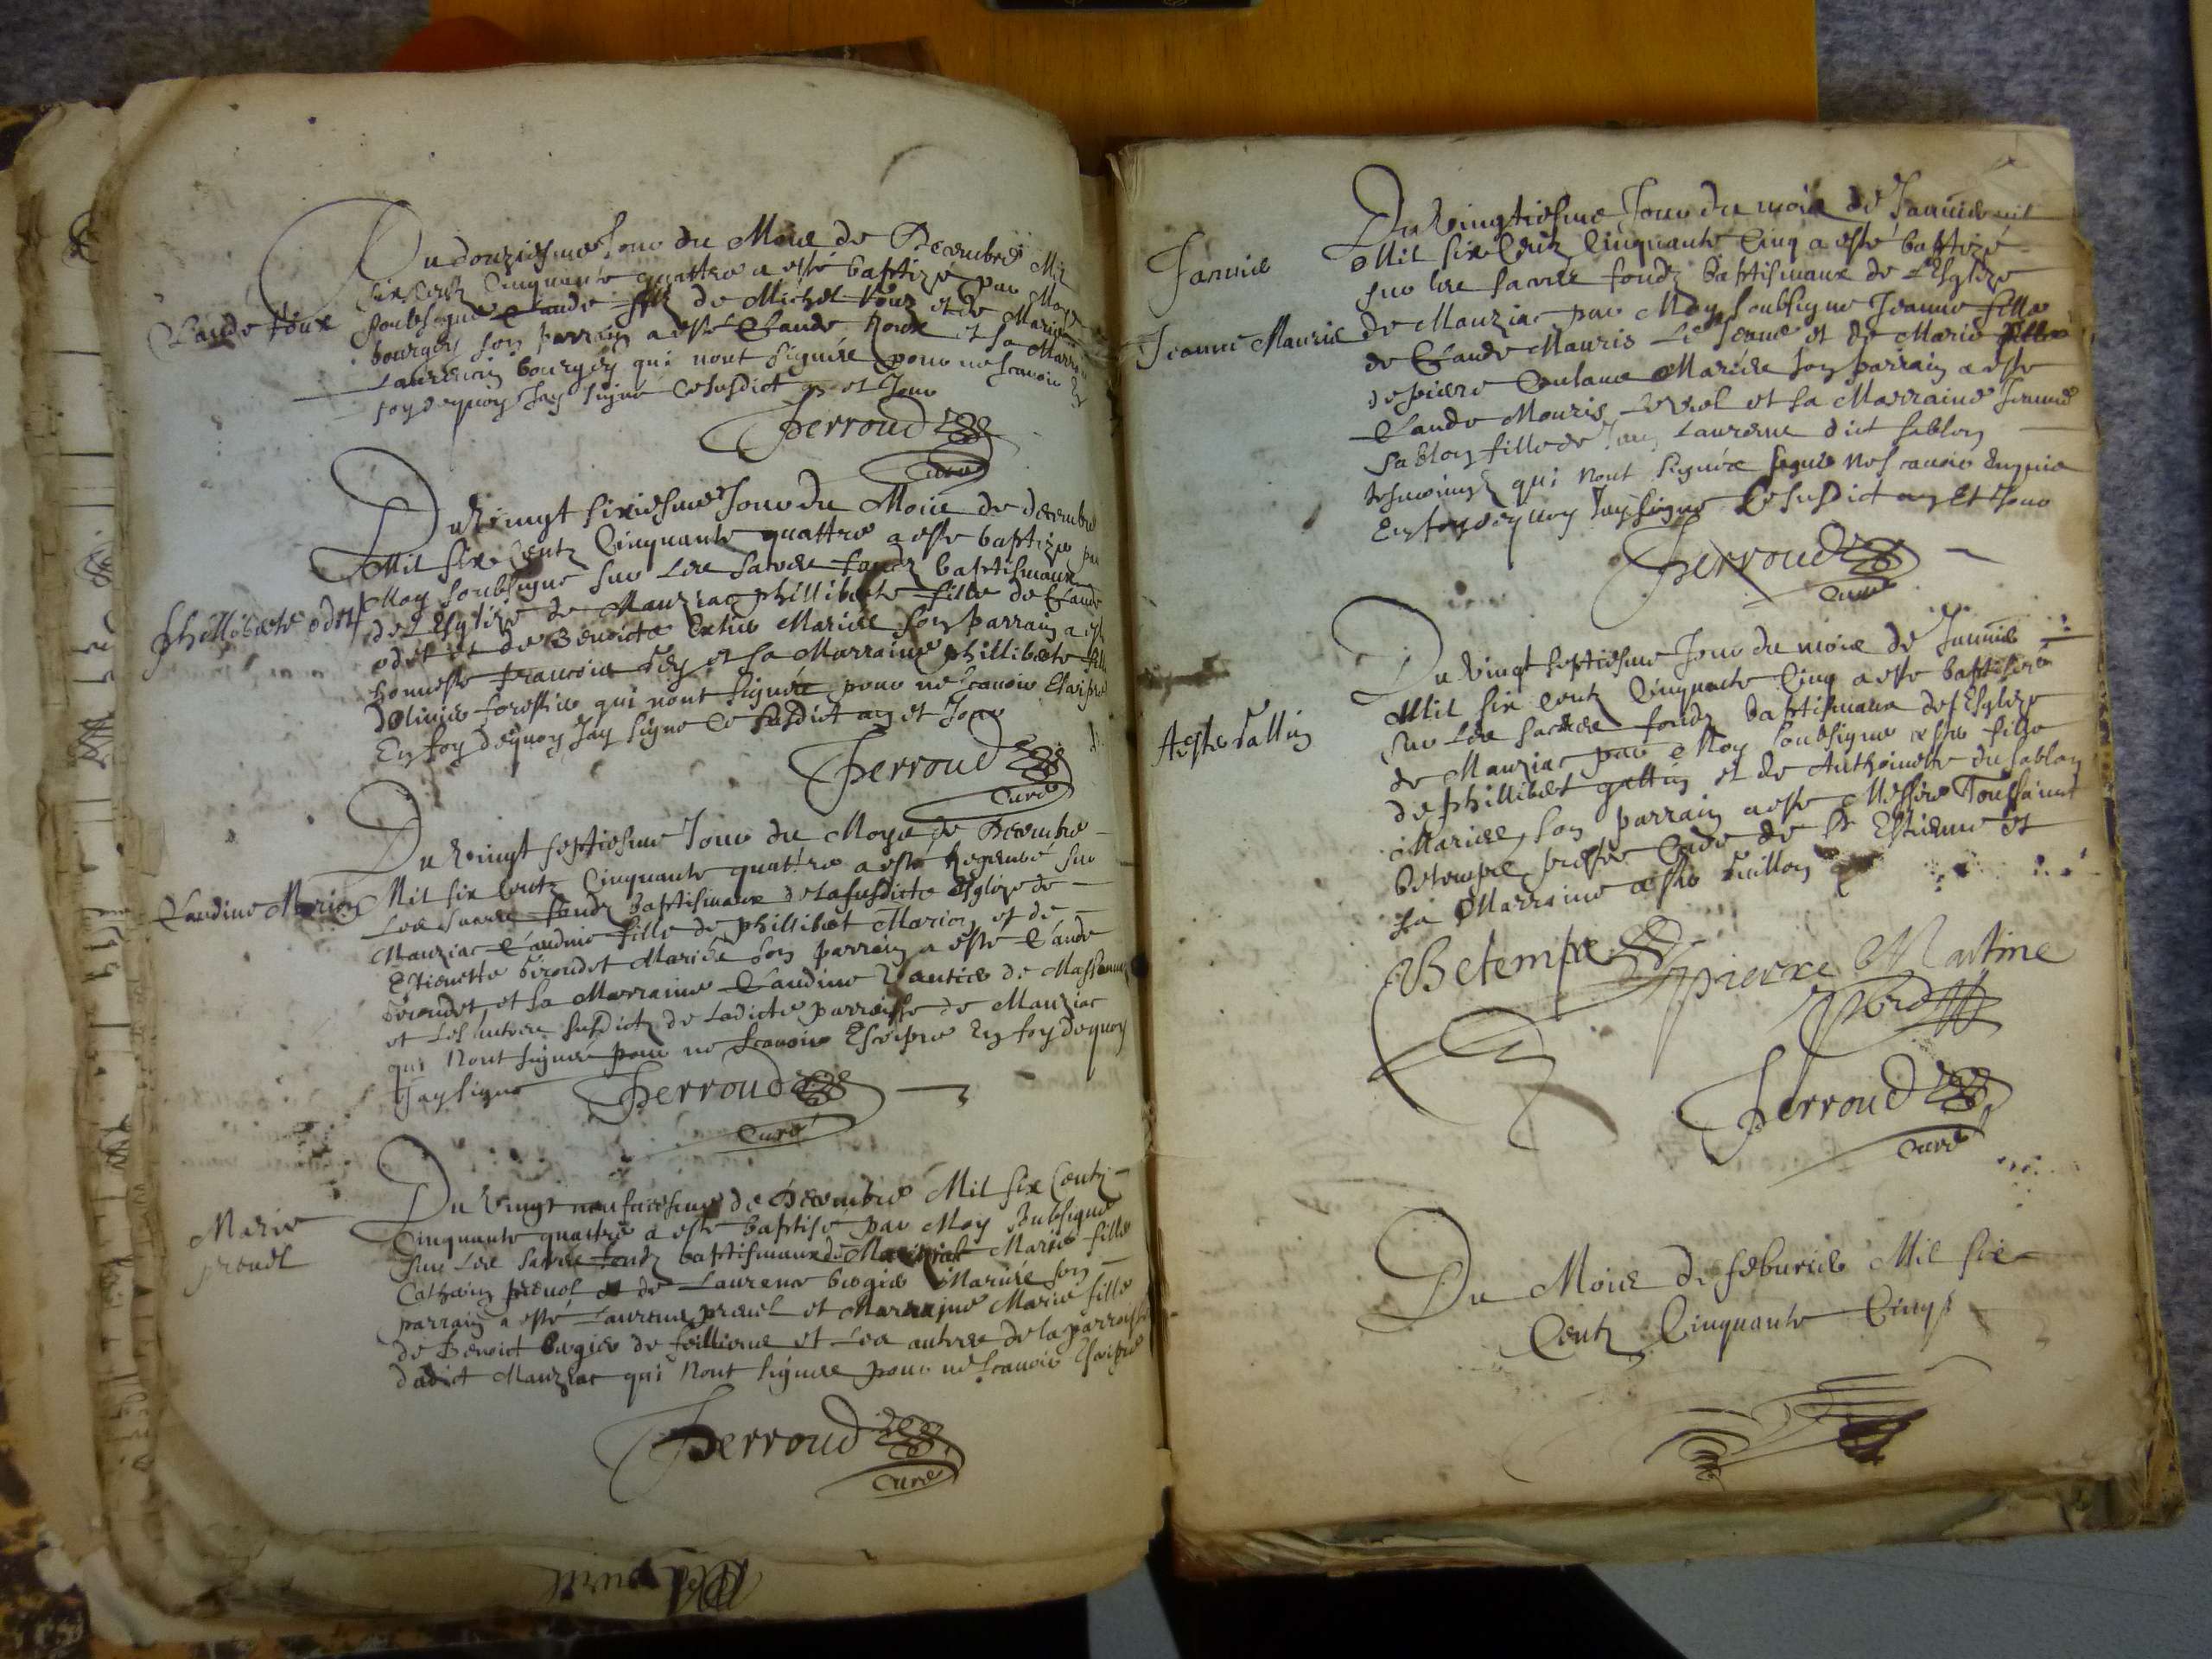 Du douziesme Jour du Mois de Decembre Mil
six Centz Cinquante quattre a esté baptize par Moy
Claude Roux
soubsigne Claude filz de Michel Roux et de Marie
bourgey son parrain a esté Claude Roux et sa Marraine
Laurence bourgey qui nont signées pour ne scavoir En
foy de quoy Jay signé Ce susdict an et Jour
Perroud
Curé
Du Vingt sixiesme Jour du Mois de decembre
Mil six Centz Cinquante quattre a este baptizee par
Moy soubsigne sur Les sacrez fondz baptismaux
Philliberte odet
de L'Esglize de Manziac phillibete fille de Claude
odet et de Benoicte Mariés son parrain a esté
honneste francois Fey et sa Marraine phillibete fille
dolivier forestier qui nont signées pour ne scavoir Escripre
En foy dequoy Jay signe Ce susdict an et Jour
Perroud
Curé
Du Vingt septiesme Jour du Moys de Decembre
Claudine Marion
Mil six Centz Cinquante quattre a esté Regeneré sur
Les sacrez fondz Baptismaux de La susdicte Esglize de
Manziac Claudine fille de phillibet Marion et de
Estienette Perondet Mariés son parrain a este Claude
Perondet et sa Marraine Claudine de
et Les autres susdictz de Ladicte parroisse de Manziac
qui Nont signés pour ne scavoir Escripre En foy dequoy
Jay signe Perroud
Curé
Du Vingt neufviesme de Decembre Mil six Centz
Marie
prevel
Cinquante quattre a este Baptise par Moy Subsigne
sur Les sacrez fondz baptismaux de Manziat Marie fille
Catherin prevel et de Laurence bergier Mariés son
parrain a esté Laurens prevel et Marraine Marie fille
de Benoict Bergier de feilliens et Les autres de la parroisse
dudict Manziac qui Nont signées pour ne scavoir Escripre
Perroud
Curé
Du Vingtiesme Jour du mois de Janvier
Janvier
Mil six Centz Cinquante Cinq a esté baptizé
sur les sacrez fondz baptismaux de L'Esglize
Jeanne Mauris
de Manziac par Moy soubsigne Jeanne fille
de Claude Mauris Le Jeune et de Marie fille
de piere Mariés son parrain a este
Claude Mauris Le Viel et sa Marraine Jeanne
sablon fille de Jean Laurens dict sablon
tesmoingz qui Nont signées Ne scavoir
En foy de quoy Jay signe Ce susdict an Et Jour
Perroud
Curé
Du Vingt septiesme Jour du mois de Janvier
Mil six Centz Cinquante Cinq a este baptisée
sur Les sacrez fondz baptismaux de L'Esglize
de Manziac par Moy soubsigne fille
de phillibet gallin et de Anthoinette du sablon
Mariés, son parrain a este Messire Toussainct
Betempz prestre Curé de St Estienne et
sa Marraine Guillon
Betempz
pierre Martine
Perroud
Curé
Du Mois de feburier Mil six
Centz Cinquante Cinq